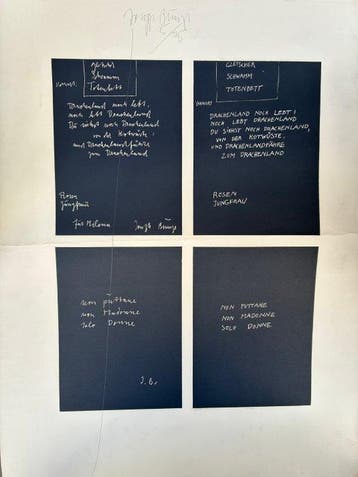 Schwamm
Totenbett
Drachenland noch lebt,
noch lebt Drachenland
Du siehst noch Drachenland
und Drachenlandfähre
zum Drachenland
Rosen
Jungfrau
Für
GLETSCHER
SCHWAMM
TOTENBETT
DRACHENLAND NOCH LEBT!
NOCH LEBT DRACHENLAND
DU SIEHST NOCH DRACHENLAND,
VON DER KOTWÜSTE,
UND DRACHENLANDFÄHRE
ZUM DRACHENLAND
ROSEN
JUNGFRAU
non puttane
non Madonne
solo Donne
J.B.
NON PUTTANE
NON MADONNE
SOLO DONNE